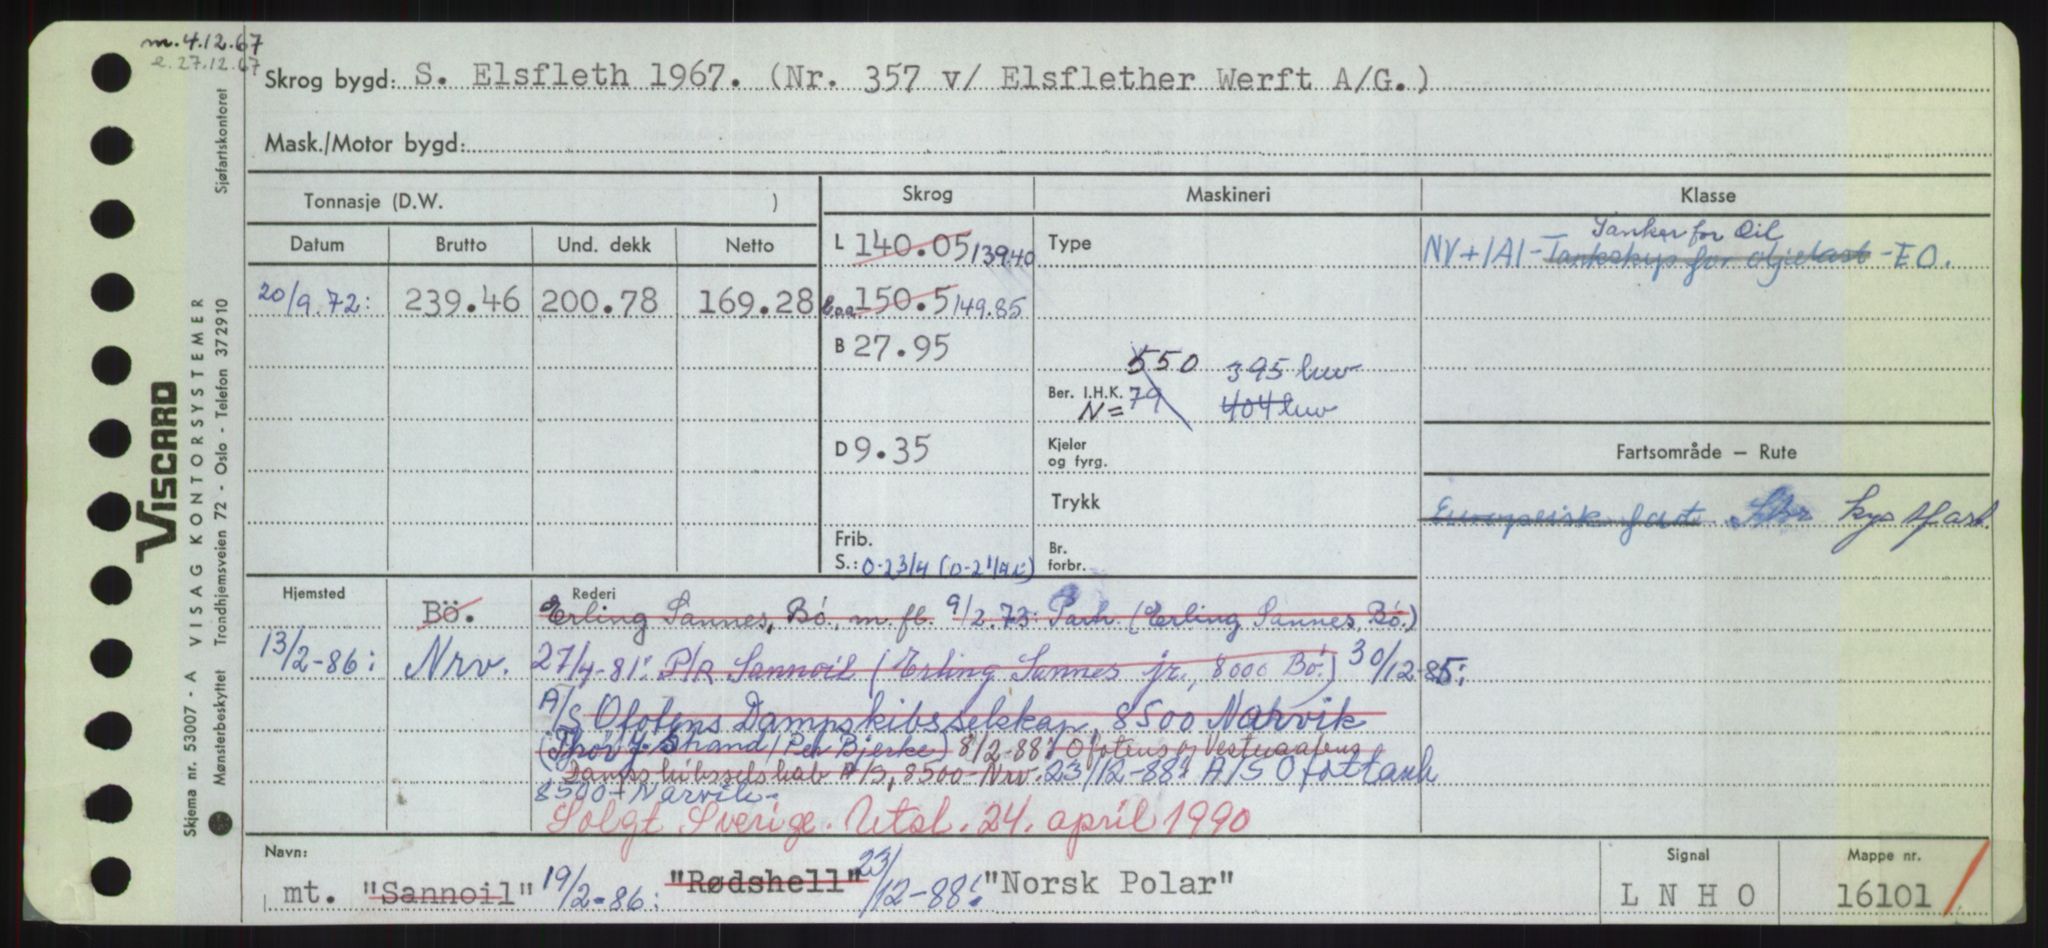 m. 4.12.67
e. 27.12.67
Skrog bygd: S. Elsfleth 1967. (Nr. 357 v/ Elsflether Werft A/G.)
Mask./Motor bygd:
Tonnasje (D.W. )
Skrog
Maskineri
Klasse
Datum Brutto Und. dekk Netto
L 140.05 139.40
Type
Tanker for Oil
NV+1A1-Tankskip for oljelast-EO.
20/9.72: 239.46 200.78 169.28
Loa 150.5 149.85
B 27.95
550 395 kw
Ber. I.H.K. 79 404 kw
N=
D 9.35
Kjeler
og fyrg.
Fartsområde — Rute
Trykk
Europeisk fart Stor kystfart.
Frib.
S.: 0-2 3/4
Br.
forbr.
Hjemsted Bö.
Rederi
Erling Sannes, Bö, m. fl. 9/2.73: Parh. (Erling Sannes, Bö.)
13/2-86: Nrv. 27/4-81: P/R Sannoil (Erling Sannes jr., 8000 Bö.) 30/12-85:
A/S Ofotens Dampskibsselskap, 8500 Narvik
(Thor J. Strand/Per Bjerke) 8/2-88: Ofotens og Vesteraalens
Dampskibsselskab A/S, 8500-Nrv. 23/12-88: A/S Ofottank
8500-Narvik-
Solgt Sverige. Utsl. 24. april 1990
Navn:
mt. "Sannoil" 19/2-86: "Rødshell" 23/12-88: "Norsk Polar"
Signal
L N H O
Mappe nr.
16101
VISCARD
Skjema nr. 53007 - A VISAG KONTORSYSTEMER
Mønsterbeskyttet Trondhjemsveien 72 - Oslo - Telefon 372910 Sjøfartskontoret